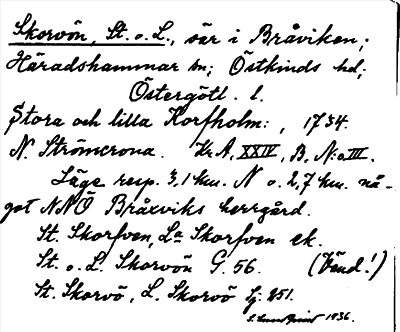 Skorvön, St. o. L., öar i Bråviken;
Häradshammar sn; Östkinds hd;
Östergötl. l.
Stora och lilla Korfholm:, 1734.
N. Strömcrona. Kr. A, XXIV, B, N:o III.
Läge resp. 3,1 km. N o. 2,7 km. nå-
got NNÖ Bråxviks herrgård.
St. Skorfven, La Skorfven ek.
St. o. L. Skorvön G. 56. (Vänd!)
St. Skorvö, L. Skorvö Lj: 851.
1936.